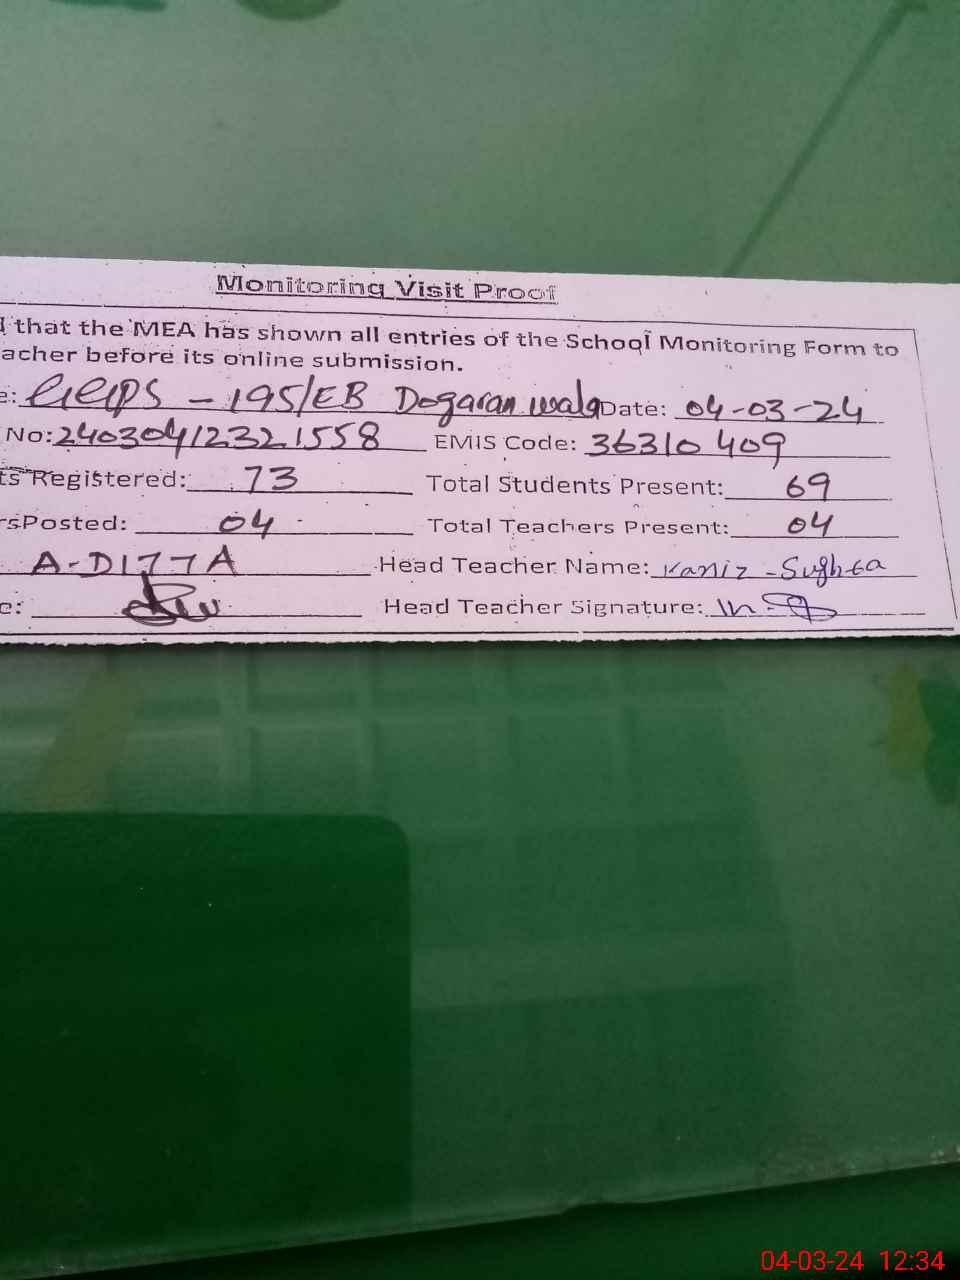 Monitoring Visit Proof
that the MEA has shown all entries of the School Monitoring Form to
acher before its online submission.
e: GGPS - 195/EB Dogaran wala Date: 04-03-24
No: 240304123221558 EMIS Code: 36310409
ts Registered: 73 Total Students Present: 69
rsPosted: 04 Total Teachers Present: 04
A-DITTA Head Teacher Name: Kaniz - Sughra
e: Head Teacher Signature:
04-03-24 12:34